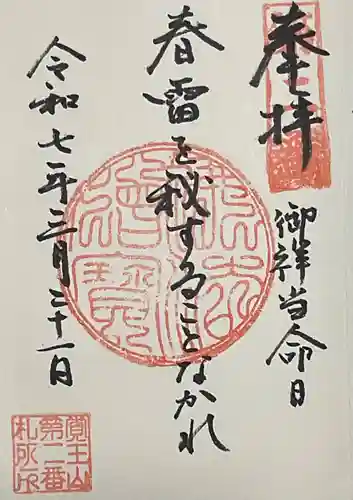 奉拝
御祥当命日
春雷を秘することなかれ
令和七年三月三十一日
佛法
僧寶
覺王山
第二番
札所